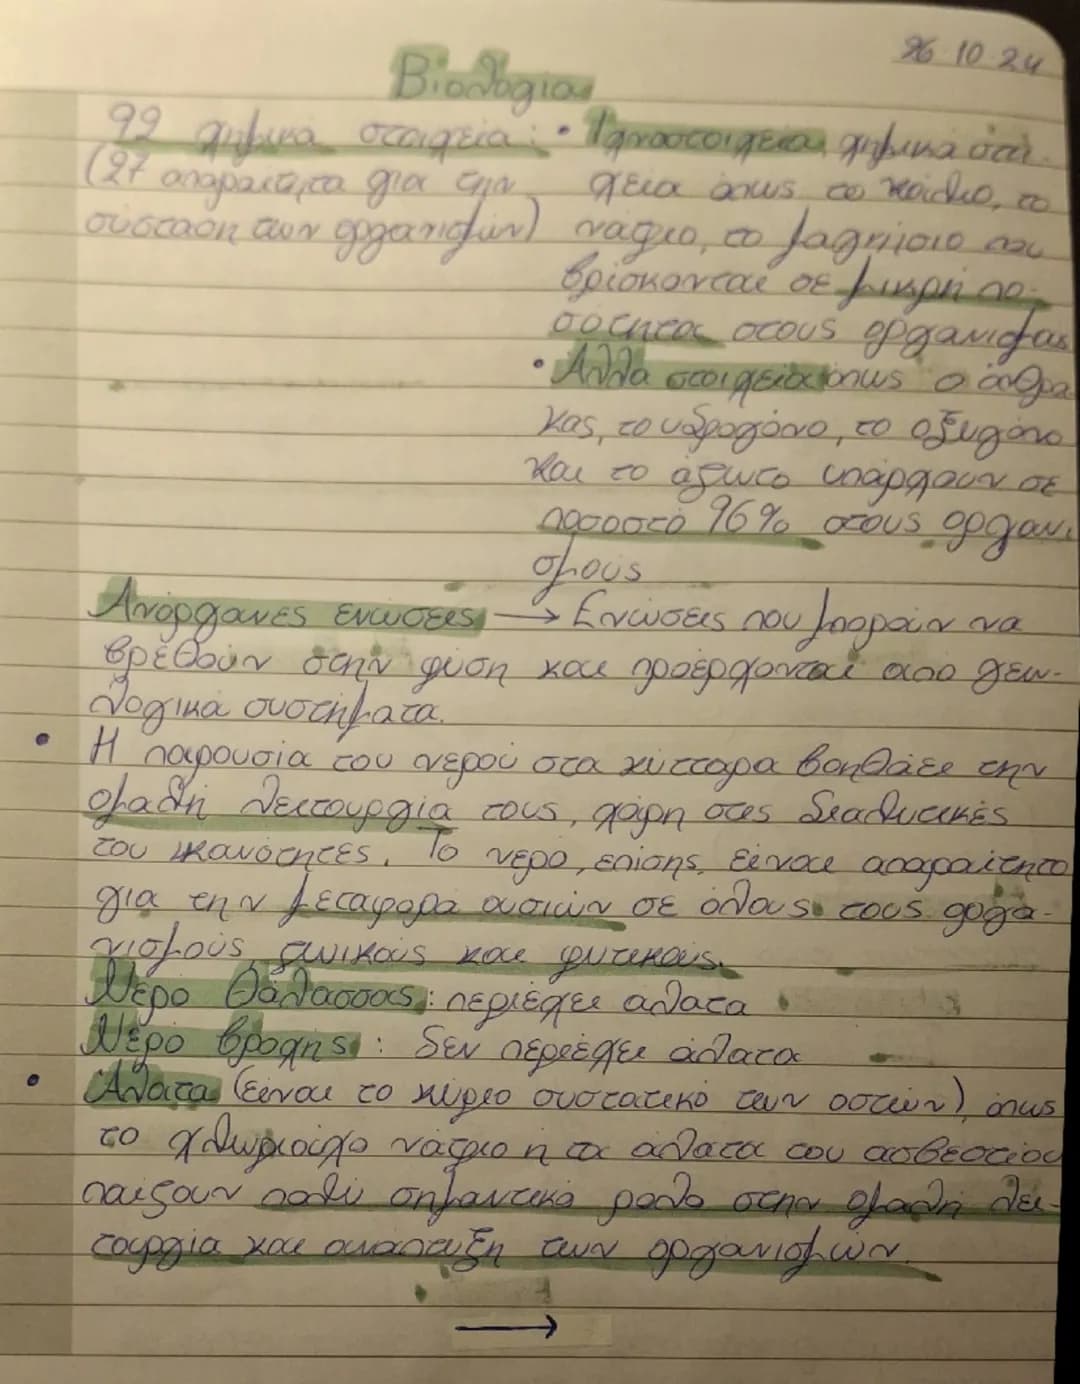 26·10·24
Βιολογία
92 χημικά στοιχεία:
(27 απαραίτητα για την
σύσταση των οργανισμών)
• Ιχνοστοιχεία χημικά στοι-
χεία όπως το κάλιο, το
νάτριο, το μαγνήσιο που
βρίσκονται σε μικρή πο-
σότητα στους οργανισμους
• Άλλα στοιχεία όπως ο άνθρα
κας, το υδρογόνο, το οξυγόνο
και το άζωτο υπάρχουν σε
ποσοστό 96% στους οργανι
σμους
Ανόργανες ενώσεις → Ενώσεις που μπορούν να
βρεθούν στην φύση και προέρχονται απο γεω-
λογικά συστήματα.
• Η παρουσία του νερού στα κύτταρα βοηθάει την
ομαλή λειτουργία τους, χάρη στις διαλυτικές
του ικανότητες. Το νερο, επίσης, είναι απαραίτητο
για την μεταφορα ουσιών σε όλους τους οργα-
νισμούς, ζωικούς και φυτικούς.
Νερο θάλασσας: περιέχει αλατα
Νερό βροχής: δεν περιέχει άλατα
• Άλατα (είναι το κύριο συστατικό των οστών), όπως
το χλωριούχο νάτριο ή τα άλατα του ασβεστίου
παίζουν πολύ σημαντικό ρολο στην ομαλή λει-
τουργία και αναπτυξη των οργανισμών.
→